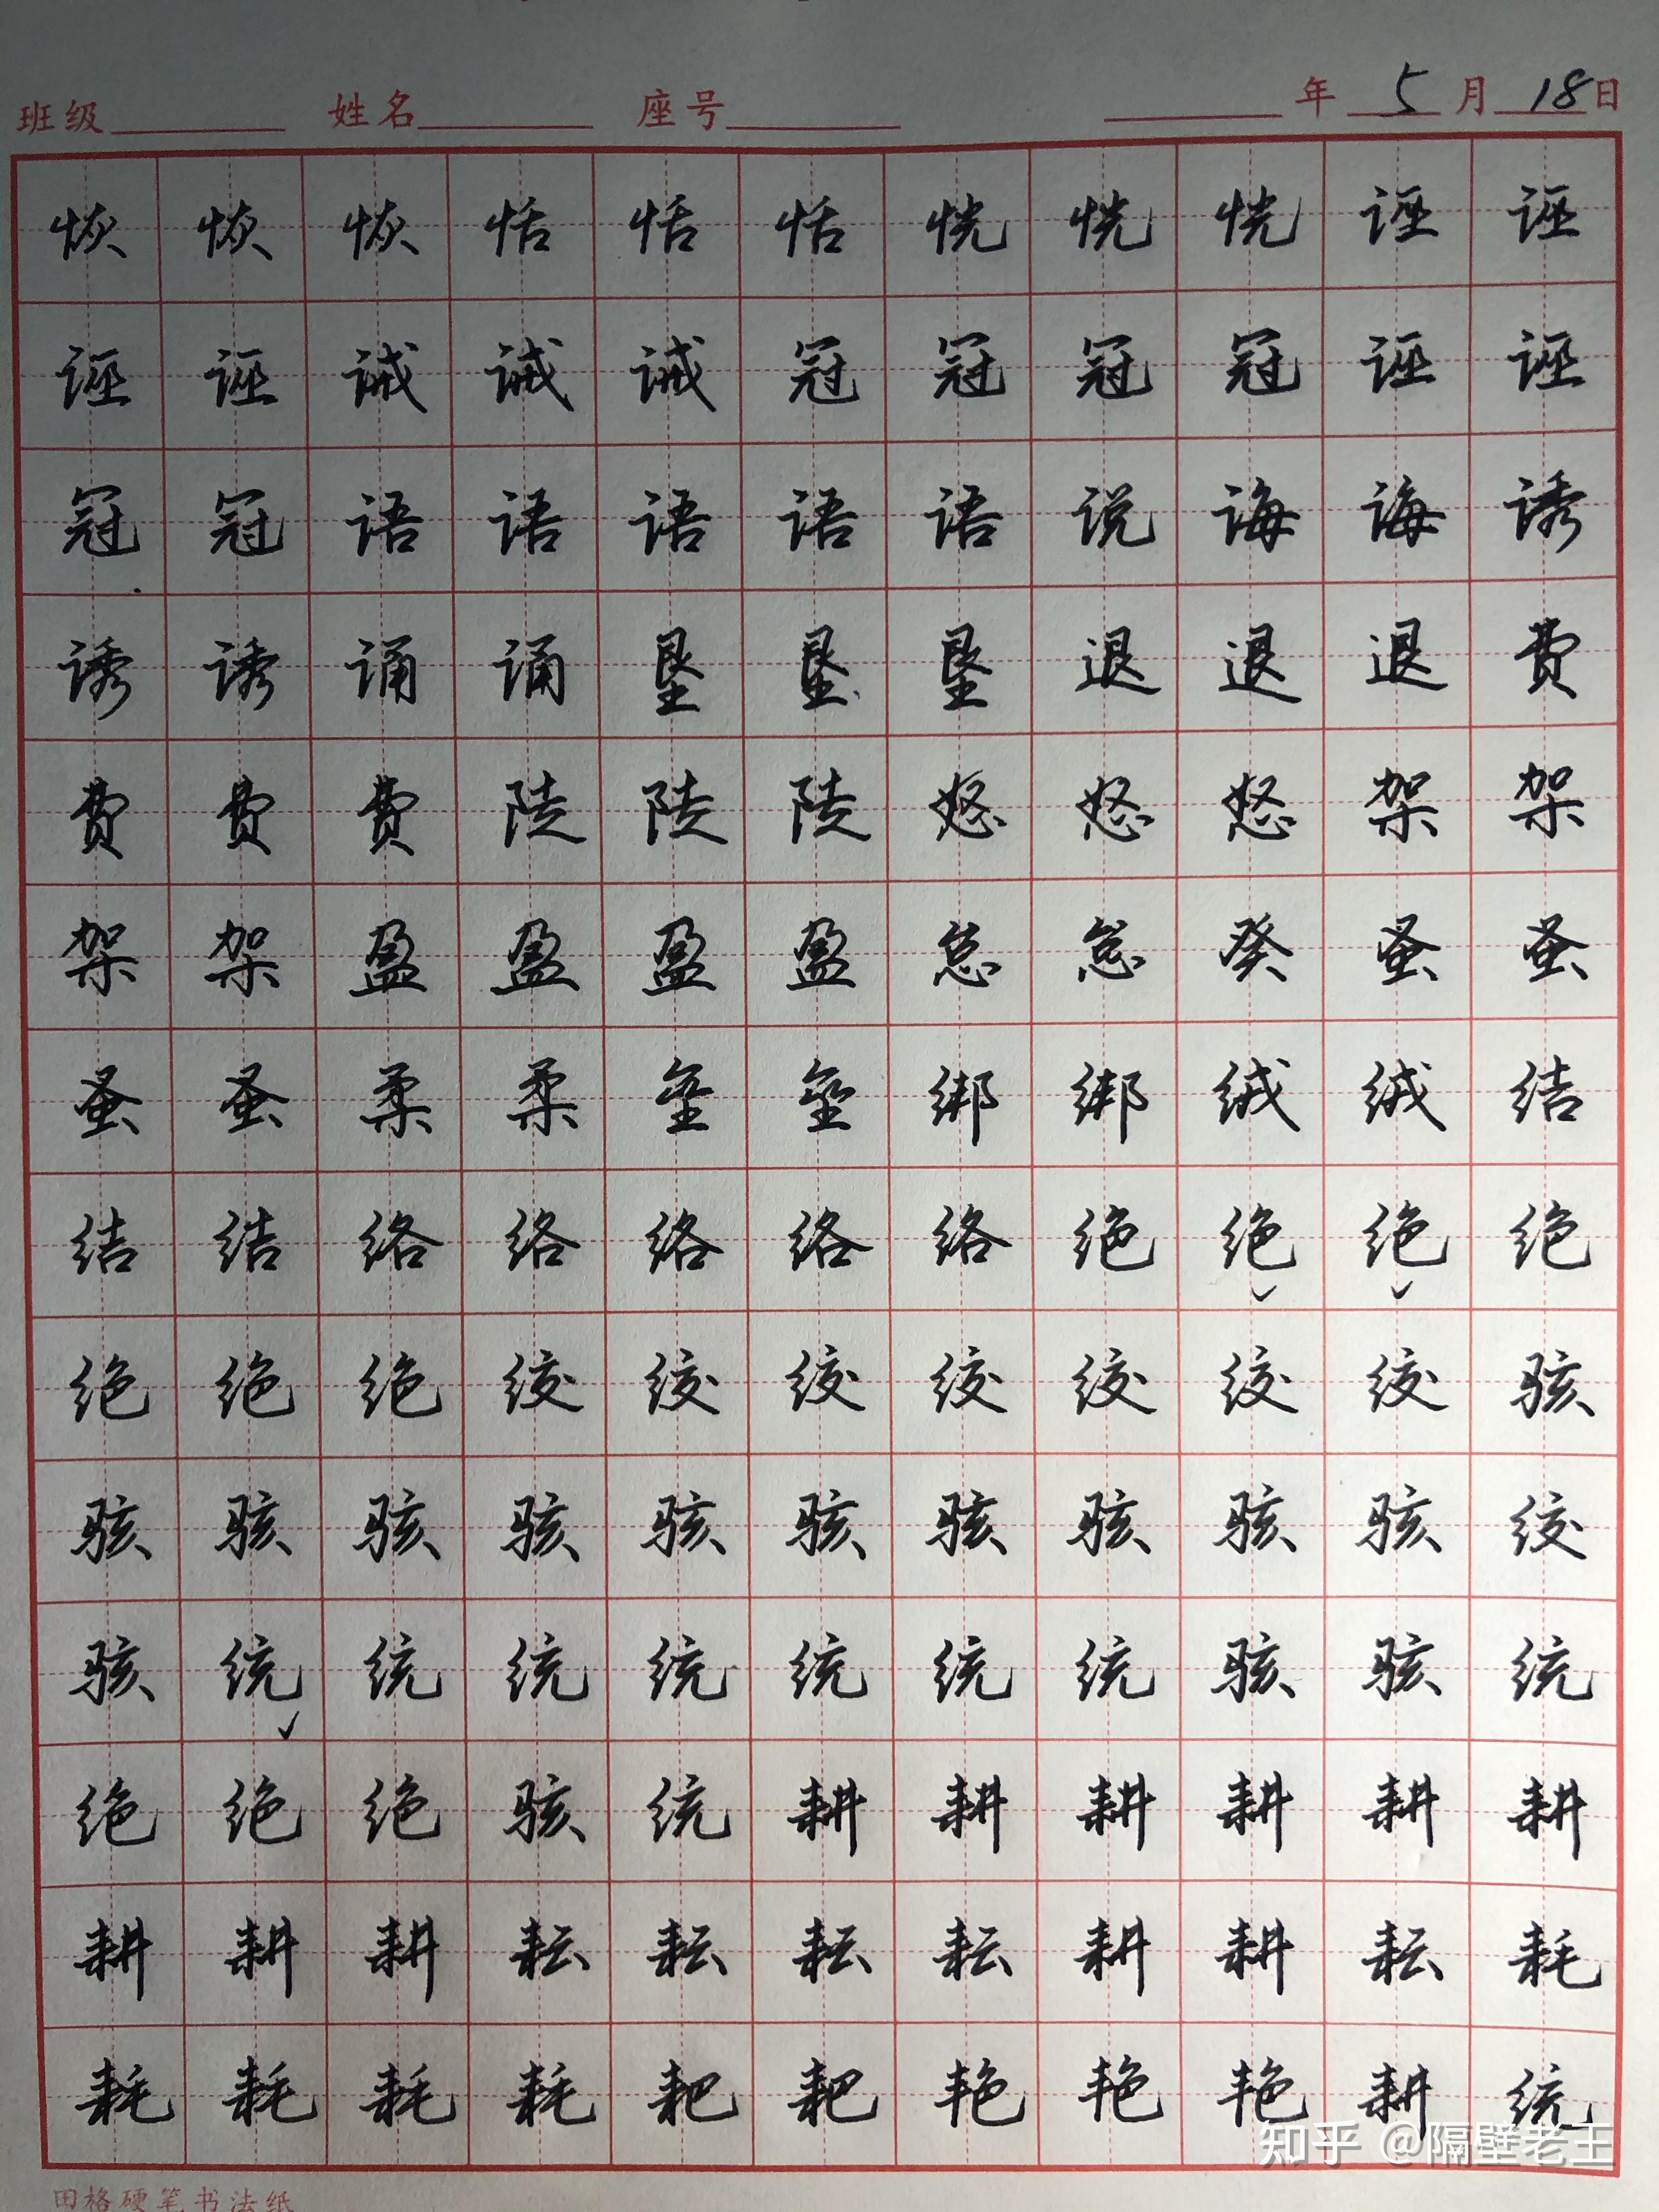 班级 姓名 座号 年 5 月 18 日
恢恢恢恬恬恬恍恍恍诬诬
诬诬诫诫诫冠冠冠冠诬诬
冠冠语语语语语说诲诲诱
诱诱诵诵垦垦垦退退退费
费费费陡陡陡怒怒怒架架
架架盈盈盈盈怠怠癸蚤蚤
蚤蚤柔柔垒垒绑绑绒绒结
结结络络络络络绝绝绝绝
绝绝绝绞绞绞绞绞绞绞骇
骇骇骇骇骇骇骇骇骇骇绞
骇统统统统统统统骇骇统
绝绝绝骇统耕耕耕耕耕耕
耕耕耕耘耘耘耘耕耕耘耗
耗耗耗耗耙耙艳艳艳耕统
知乎 @隔壁老王
田格硬笔书法纸